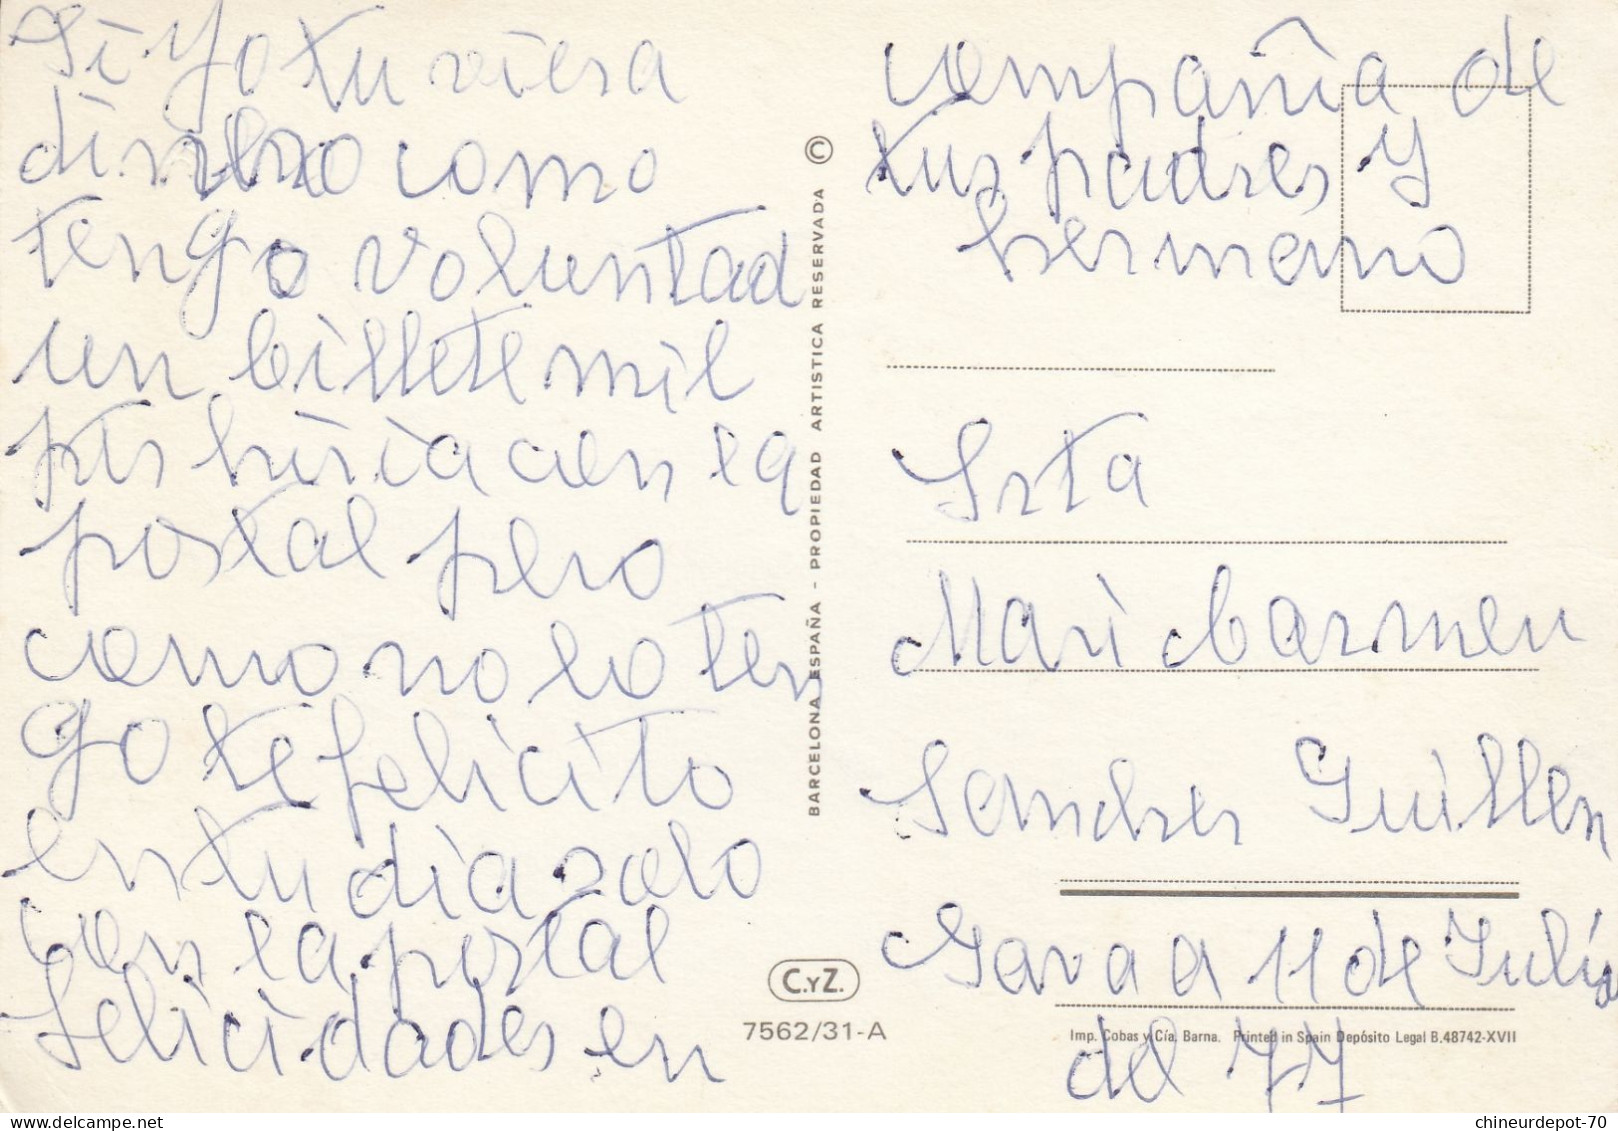 Si Yo tuviera
dinero como
tengo voluntad
un billete mil
pts hiria con la
postal pero
como no lo ten
go te felicito
en tu dia solo
con la postal
felicidades en
compañia de
tus padres y
hermano
Srta
Mari Carmen
Sanches Guillen
Gava a 11 de Julio
del 77
BARCELONA ESPAÑA - PROPIEDAD ARTISTICA RESERVADA ©
C.YZ.
7562/31-A
Imp. Cobas y Cía. Barna. Printed in Spain Depósito Legal B.48742-XVII
chineurdepot-70